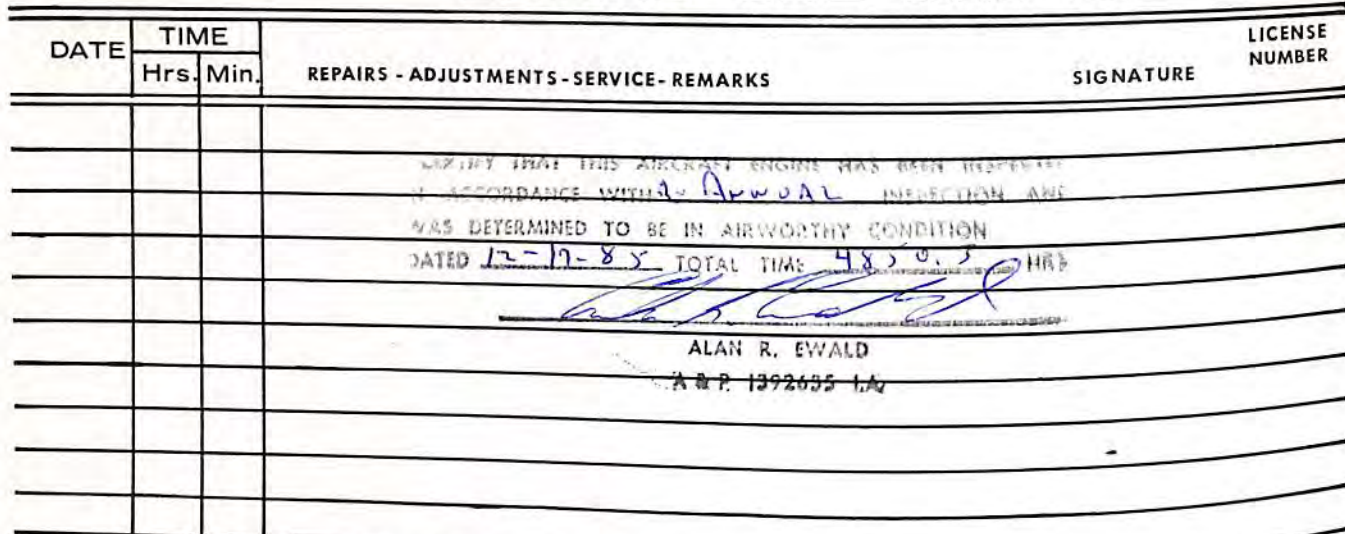 DATE TIME Hrs. Min. REPAIRS - ADJUSTMENTS - SERVICE - REMARKS SIGNATURE LICENSE NUMBER
CERTIFY THAT THIS AIRCRAFT ENGINE HAS BEEN INSPECTED
N ACCORDANCE WITH An Annual INSPECTION AND
WAS DETERMINED TO BE IN AIRWORTHY CONDITION
DATED 12-17-85 TOTAL TIME 4850.5 HRS
ALAN R. EWALD
A & P. 1392635 I.A.